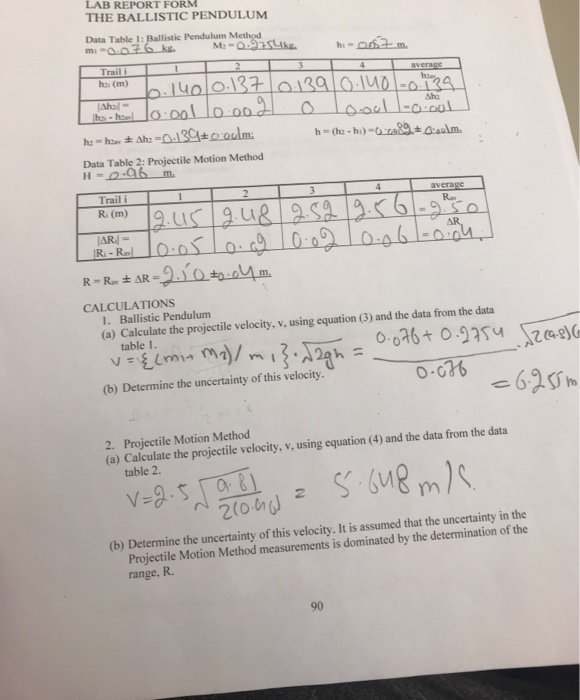 LAB REPORT FORM
THE BALLISTIC PENDULUM
Data Table 1: Ballistic Pendulum Method
m₁ = 0.076 kg. M₂ = 0.2754 kg. h₁ = 0.057 m.
Trail i 1 2 3 4 average
h₂ᵢ (m) 0.140 0.137 0.139 0.140 h₂ₐᵥ = 0.139
|Δh₂ᵢ| = |h₂ᵢ - h₂ₐᵥ| 0.001 0.002 0 0.001 Δh₂ = 0.001
h₂ = h₂ₐᵥ ± Δh₂ = 0.139 ± 0.001 m;
h = (h₂ - h₁) = ± 0.001 m.
Data Table 2: Projectile Motion Method
H = 0.96 m.
Trail i 1 2 3 4 average
Rᵢ (m) 2.45 2.48 2.52 2.56 Rₐᵥ = 2.50
|ΔRᵢ| = |Rᵢ - Rₐᵥ| 0.05 0.02 0.02 0.06 ΔR = 0.04.
R = Rₐᵥ ± ΔR = 2.50 ± 0.04 m.
CALCULATIONS
1. Ballistic Pendulum
(a) Calculate the projectile velocity, v, using equation (3) and the data from the data
table 1.
v = {(m₁ + m₂)/m₁}·√2gh = 0.076 + 0.2754 / 0.076 · √2(9.8)(
= 6.255 m
(b) Determine the uncertainty of this velocity.
2. Projectile Motion Method
(a) Calculate the projectile velocity, v, using equation (4) and the data from the data
table 2.
V = 2.5 √9.81 / 2(0.96) = 5.648 m/s.
(b) Determine the uncertainty of this velocity. It is assumed that the uncertainty in the
Projectile Motion Method measurements is dominated by the determination of the
range, R.
90